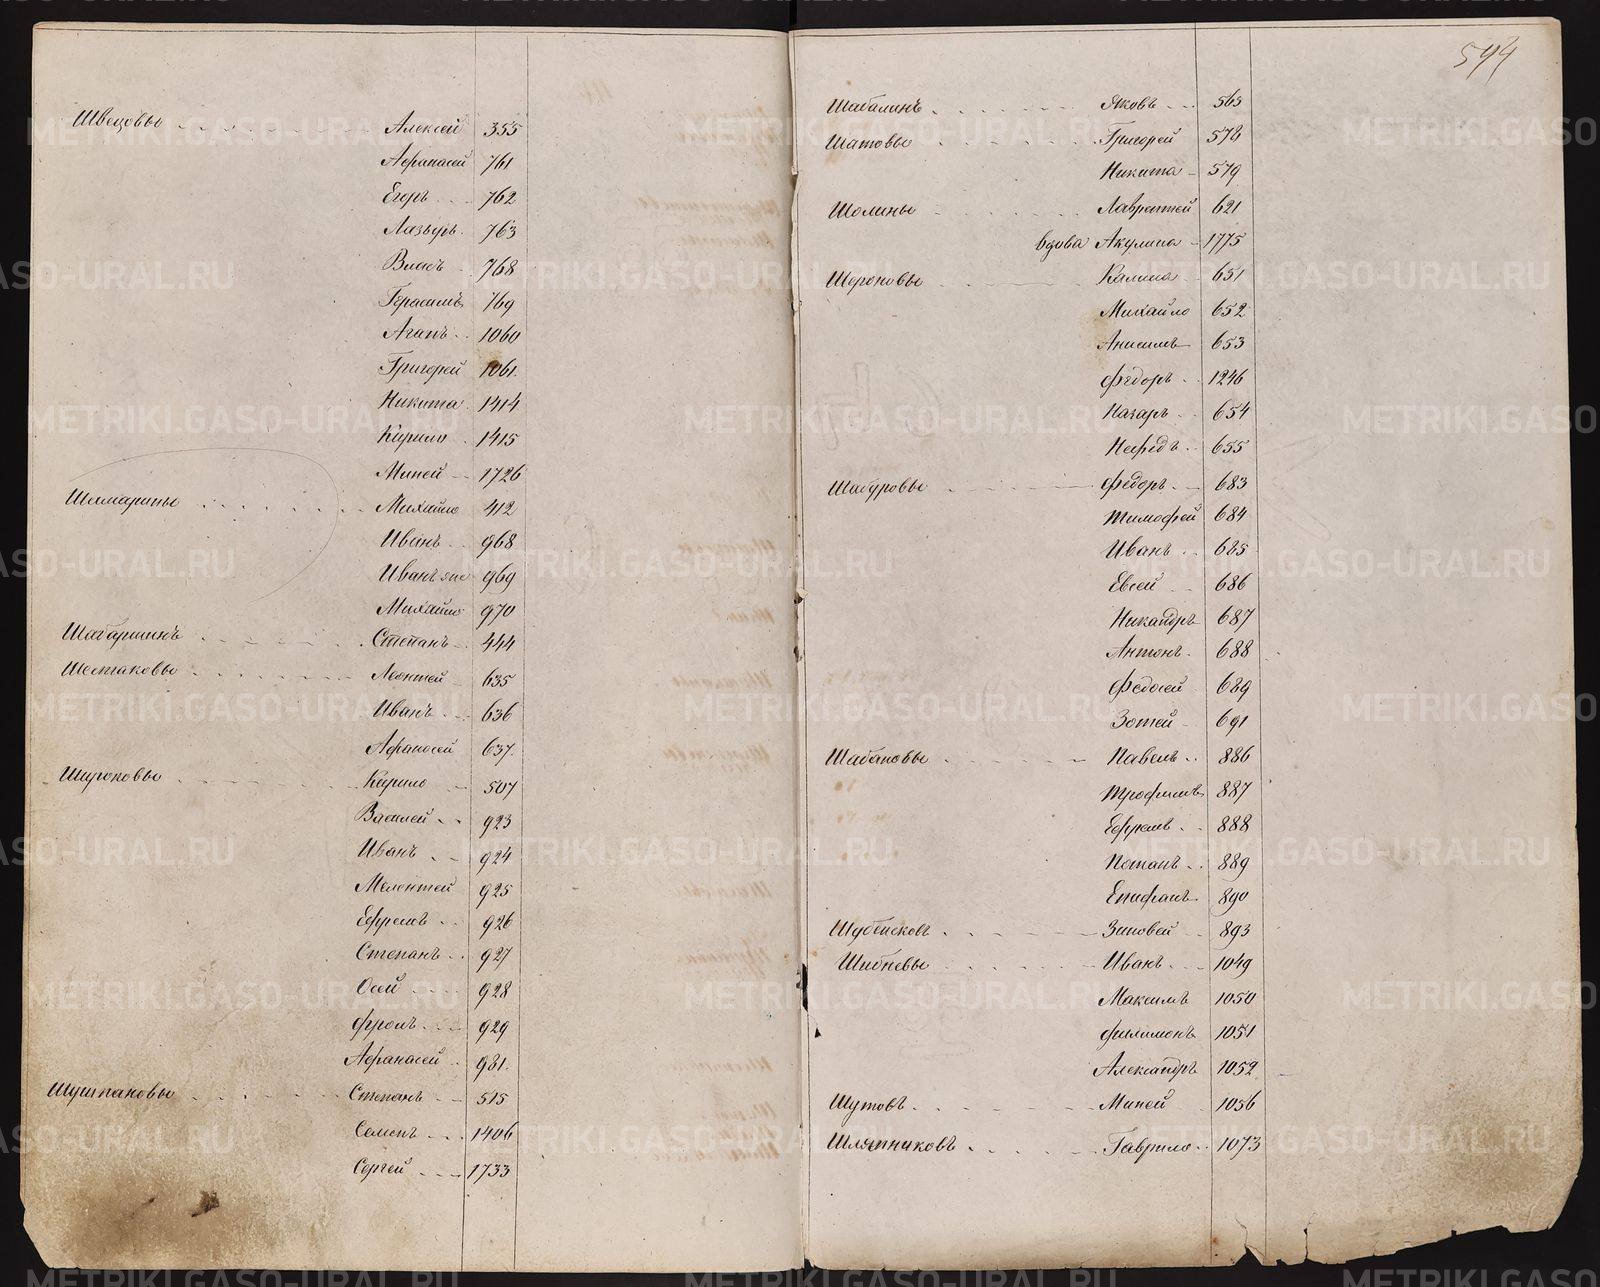 Швецовы Алексей 355
Афанасей 761
Егоръ 762
Лазырь 763
Власъ 768
Герасимъ 769
Агапъ 1060
Григорей 1061.
Никита 1414
Кирило 1415
Миней 1726
Шамарины Михайло 412
Иванъ 968
Иванъ 969
Михайло 970
Шабаршинъ Степанъ 444
Шестаковы Леонтей 635
Иванъ 636
Афанасей 637.
Широковы Кирило 507
Василей 923
Иванъ 924
Мелентей 925
Ефремъ 926
Степанъ 927
Осей 928
Фролъ 929
Афанасей 981.
Шушпановы Степанъ 515
Семенъ 1406
Сергей 1733
594
Шабалинъ Яковъ 565
Шатовы Григорей 578
Никита 579
Шолины Лаврентей 621
вдова Акулина 1775
Шероновы Калина 651
Михайло 652
Анисимъ 653
Федоръ 1246
Назаръ 654
Нефедъ 655
Шабуровы Федоръ 683
Тимофей 684
Иванъ 685
Евсей 686
Никандръ 687
Антонъ 688
Федосей 689
Зотей 691
Шабановы Павелъ 886
Трофимъ 887
Ефремъ 888
Потапъ 889
Епифанъ 890
Шубенсковъ Зиновей 893
Шибневы Иванъ 1049
Максимъ 1050
Филимонъ 1051
Александръ 1052
Шутовъ Миней 1056
Шляпниковъ Гаврило 1073
METRIKI.GASO-URAL.RU